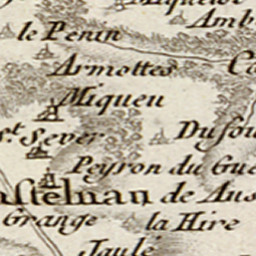 Miquelot
Amb
le Penin
Armottes
Co
Miqueu
St. Sever
Dufou
Peyron du Gue
stelnau de Aus
Grange
la Hire
Jaulé